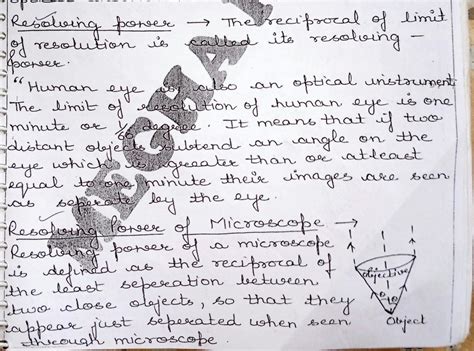 Resolving power → The reciprocal of limit
of resolution is called its resolving -
power.
"Human eye is also an optical instrument
The limit of resolution of human eye is one
minute or 1/60 degree. It means that if two
distant objects subtend an angle on the
eye which is greater than or atleast
equal to one minute their images are seen
as seperate by the eye.
Resolving Power of Microscope →
Resolving power of a microscope
is defined as the reciprocal of
the least seperation between
two close objects, so that they
appear just seperated when seen
through microscope.
Objective
θ θ
Object
MEGHA